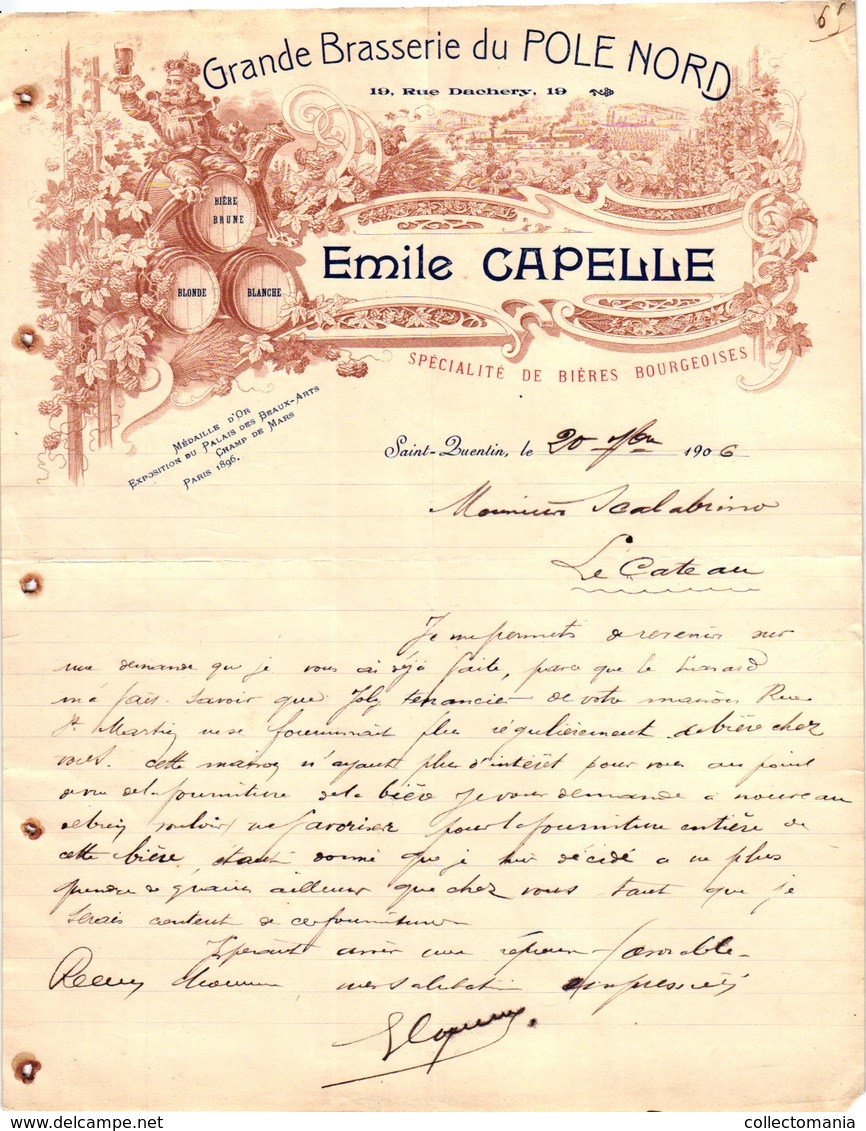 6
Grande Brasserie du POLE NORD
19, Rue Dachery, 19
BIÈRE
BRUNE
BLONDE
BLANCHE
Emile CAPELLE
SPÉCIALITÉ DE BIÈRES BOURGEOISES
MÉDAILLE D'OR
EXPOSITION DU PALAIS DES BEAUX-ARTS
CHAMP DE MARS
PARIS 1896.
Saint-Quentin, le 20 1906
Monsieur Scalabrino
Le Cateau
Je me permets de revenir sur
une demande que je vous ai déjà faite, parce que le
m'a fait savoir que Joly tenancier de votre maison Rue
St Martin ne se fournissait plus régulièrement de bière chez
vous. cette maison n'ayant plus d'intérêt pour vous au point
de vue de la fourniture de la bière Je vous demande à nouveau
de bien vouloir me favoriser pour la fourniture entière de
cette bière étant donné que je suis décidé a ne plus
prendre de graines ailleurs que chez vous tant que je
serais content de ce fournisseur
Espérant avoir une réponse favorable
Recevez Monsieur mes salutations empressées
ECapelle
collectomania